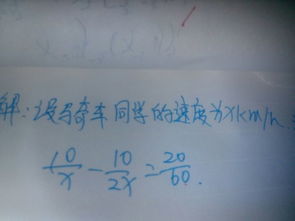 解：设骑车同学的速度为xkm/h.
10/x - 10/2x = 20/60.